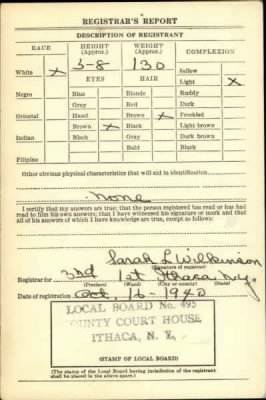 REGISTRAR'S REPORT
DESCRIPTION OF REGISTRANT
RACE HEIGHT (Approx.) WEIGHT (Approx.) COMPLEXION
White X 5-8 130 Sallow
EYES HAIR Light X
Negro Blue Blonde Ruddy
Gray Red Dark
Oriental Hazel Brown X Freckled
Brown X Black Light brown
Indian Black Gray Dark brown
Bald Black
Filipino
Other obvious physical characteristics that will aid in identification
None
I certify that my answers are true; that the person registered has read or has had
read to him his own answers; that I have witnessed his signature or mark and that
all of his answers of which I have knowledge are true, except as follows:
Sarah L Wilkinson
(Signature of registrar)
Registrar for 3rd 1st Ithaca N.Y.
(Precinct) (Ward) (City or County) (State)
Date of registration Oct. 16-1940
LOCAL BOARD No. 495
COUNTY COURT HOUSE
ITHACA, N. Y.
(STAMP OF LOCAL BOARD)
(The stamp of the Local Board having jurisdiction of the registrant
shall be placed in the above space.)